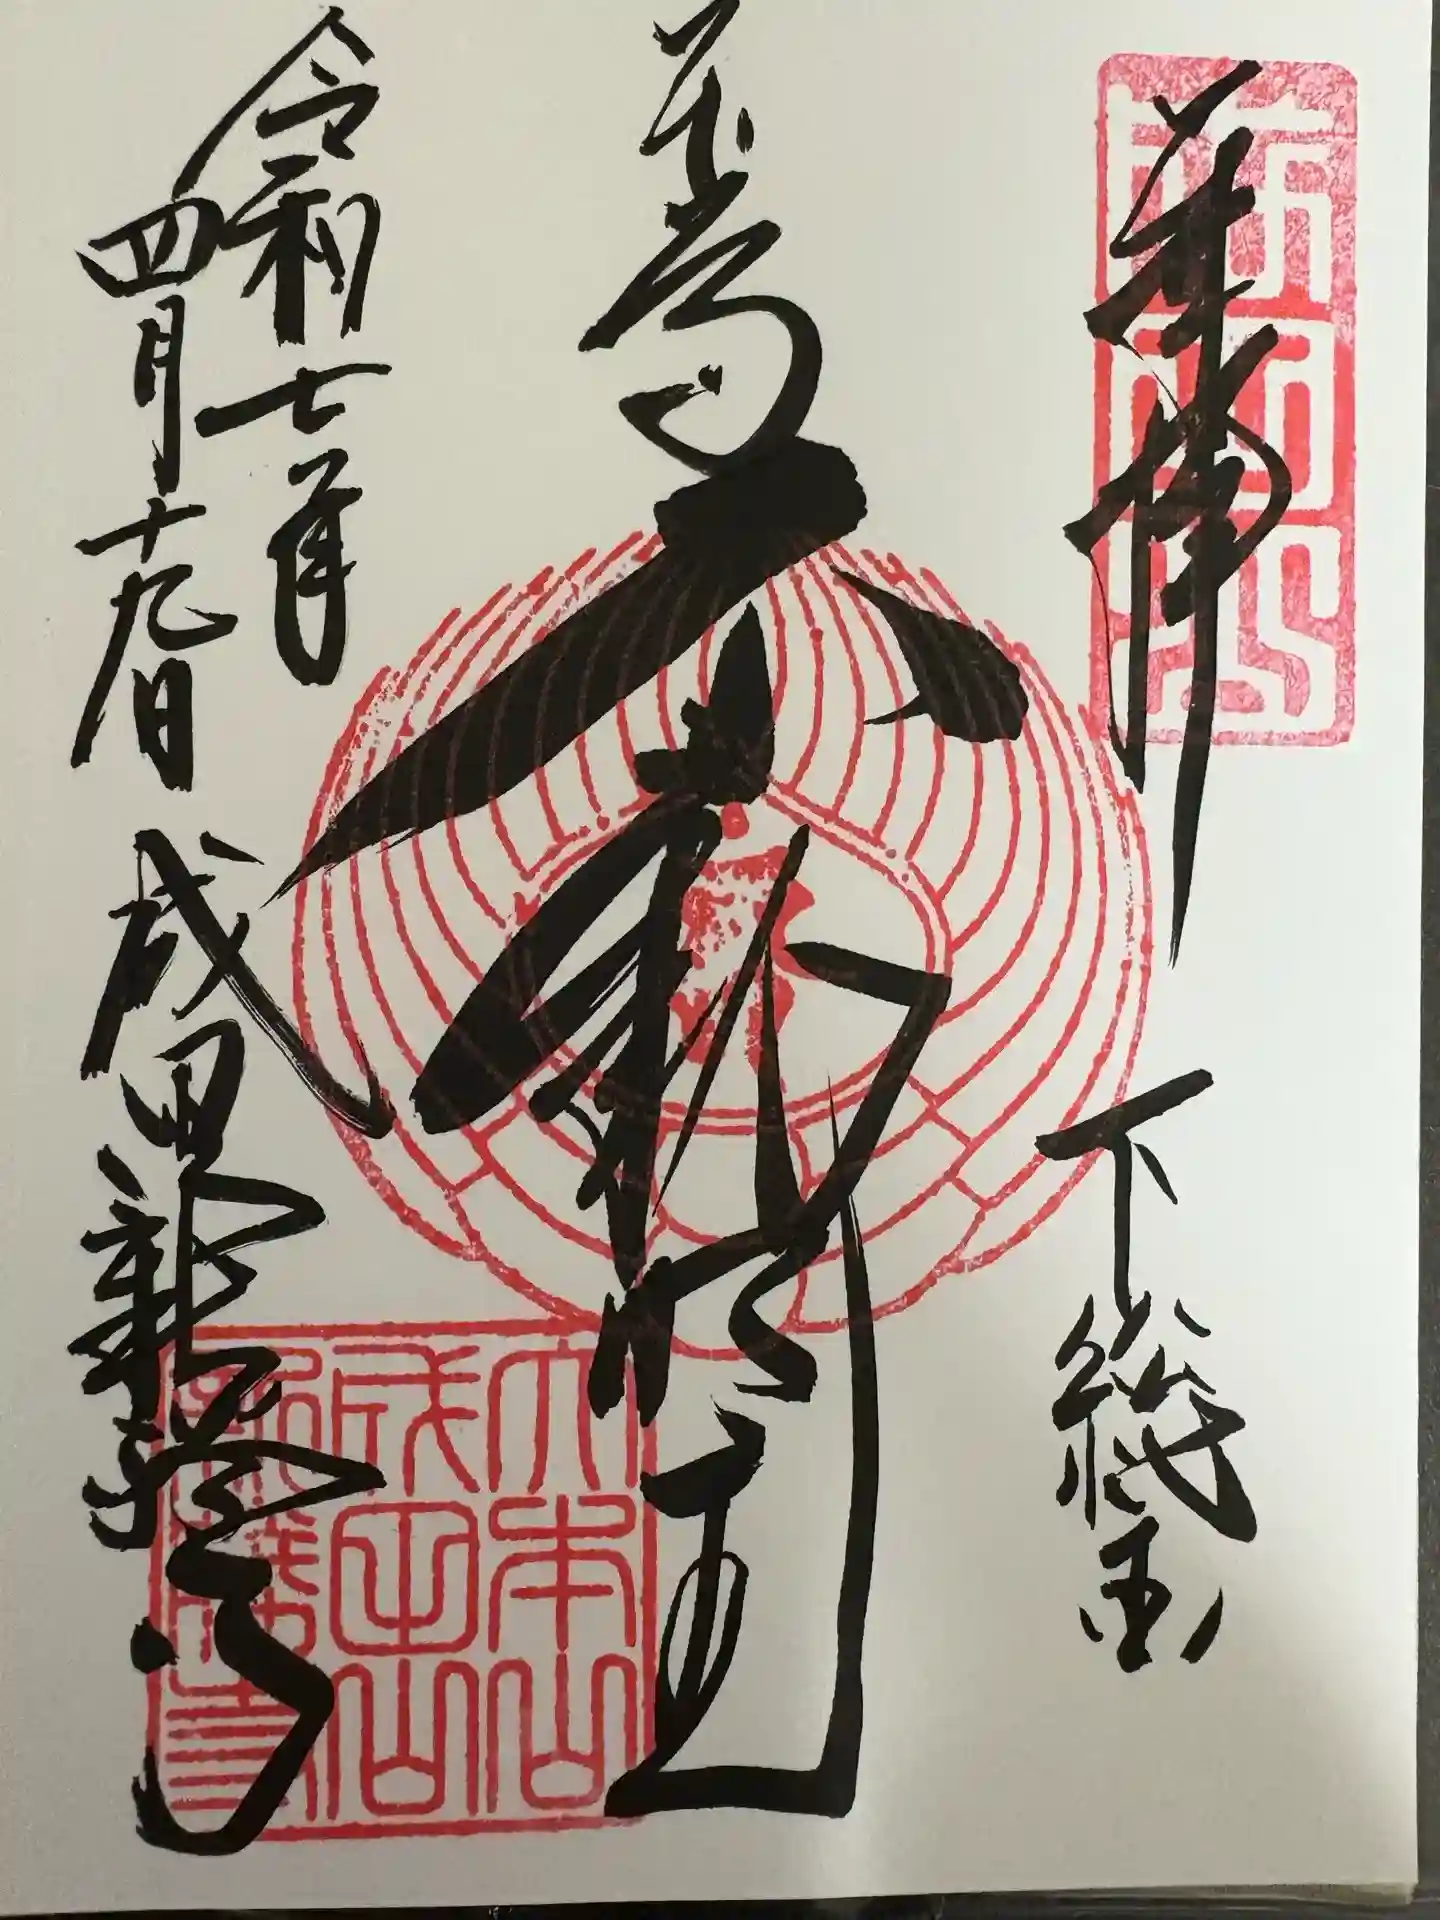 成田山
奉拝
下総国
本尊
不動明王
令和七年
四月十九日
成田山新勝寺
大本山
成田山
新勝寺